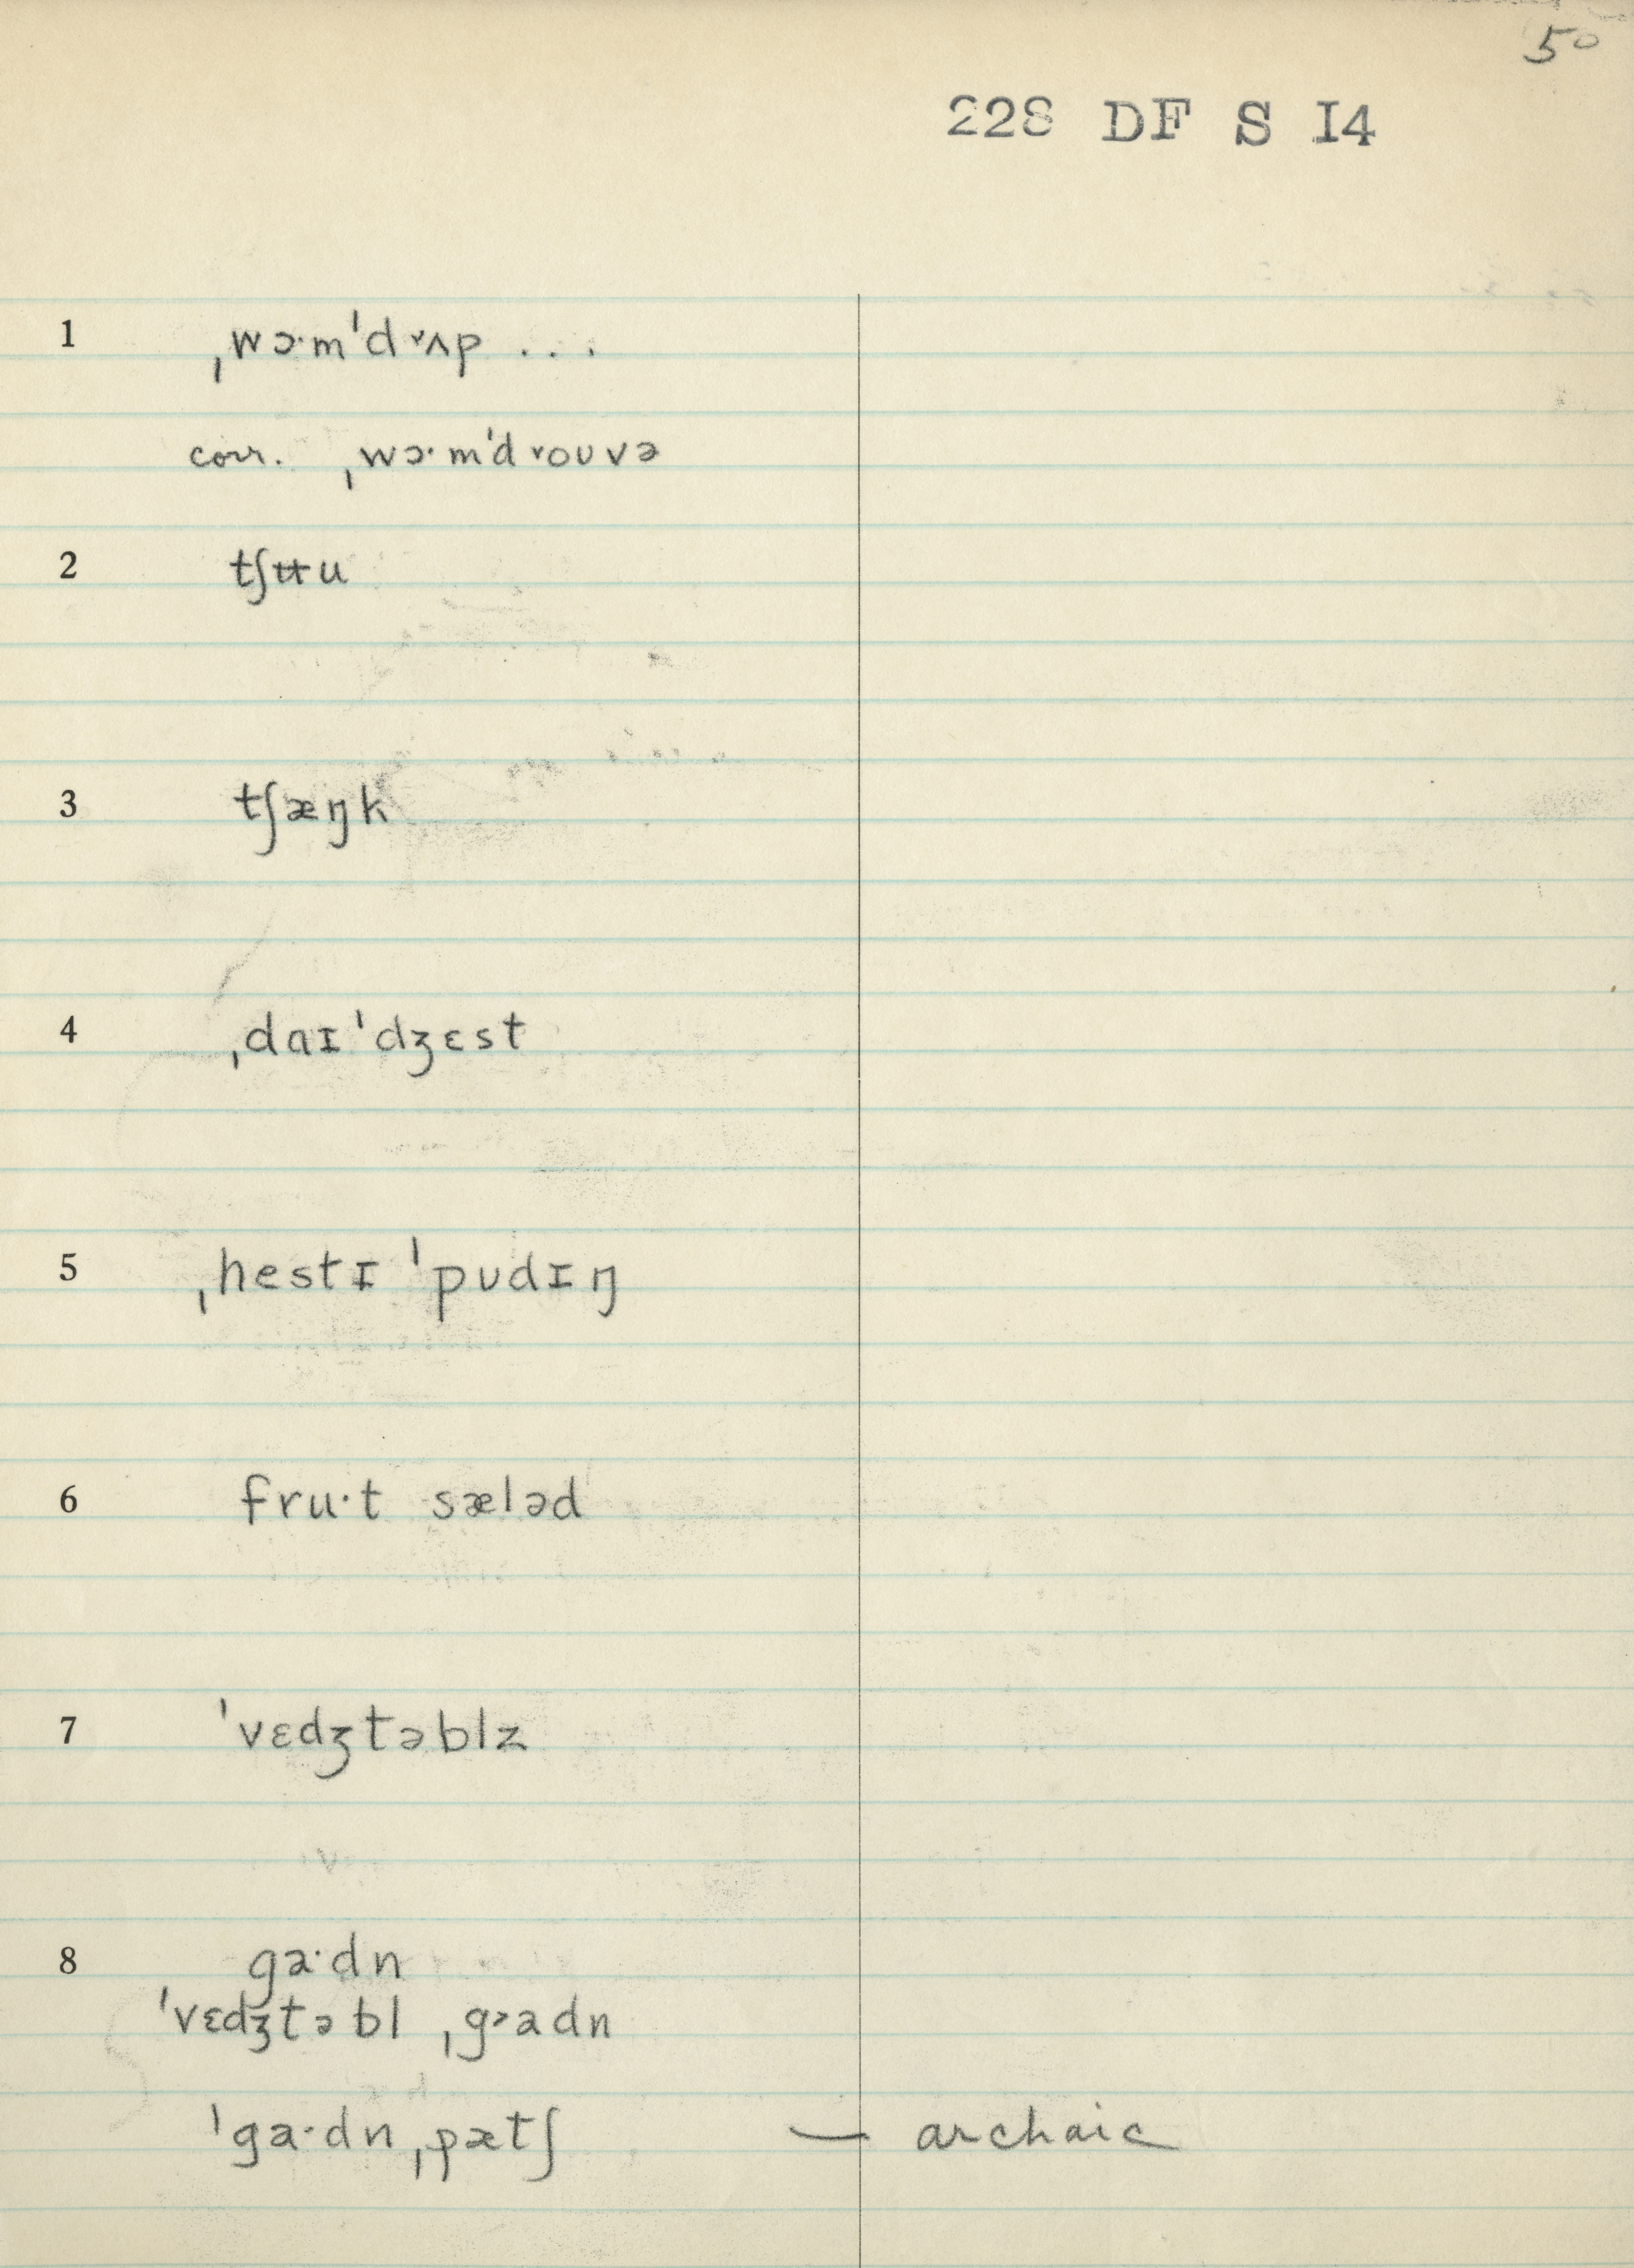 50
228 DF S I4
1 ˌwɔ·mˈdʳʌp ...
corr. ˌwɔ·mˈdʳoʊvə
2 tʃʉu
3 tʃæŋk
4 ˌdaɪˈdʒɛst
5 ˌhestɪ ˈpʊdɪŋ
6 fru·t sæləd
7 ˈvɛdʒtəblz
8 ga·dn
ˈvɛdʒtəbl ˌgᵊadn
ˈga·dnˌpætʃ — archaic